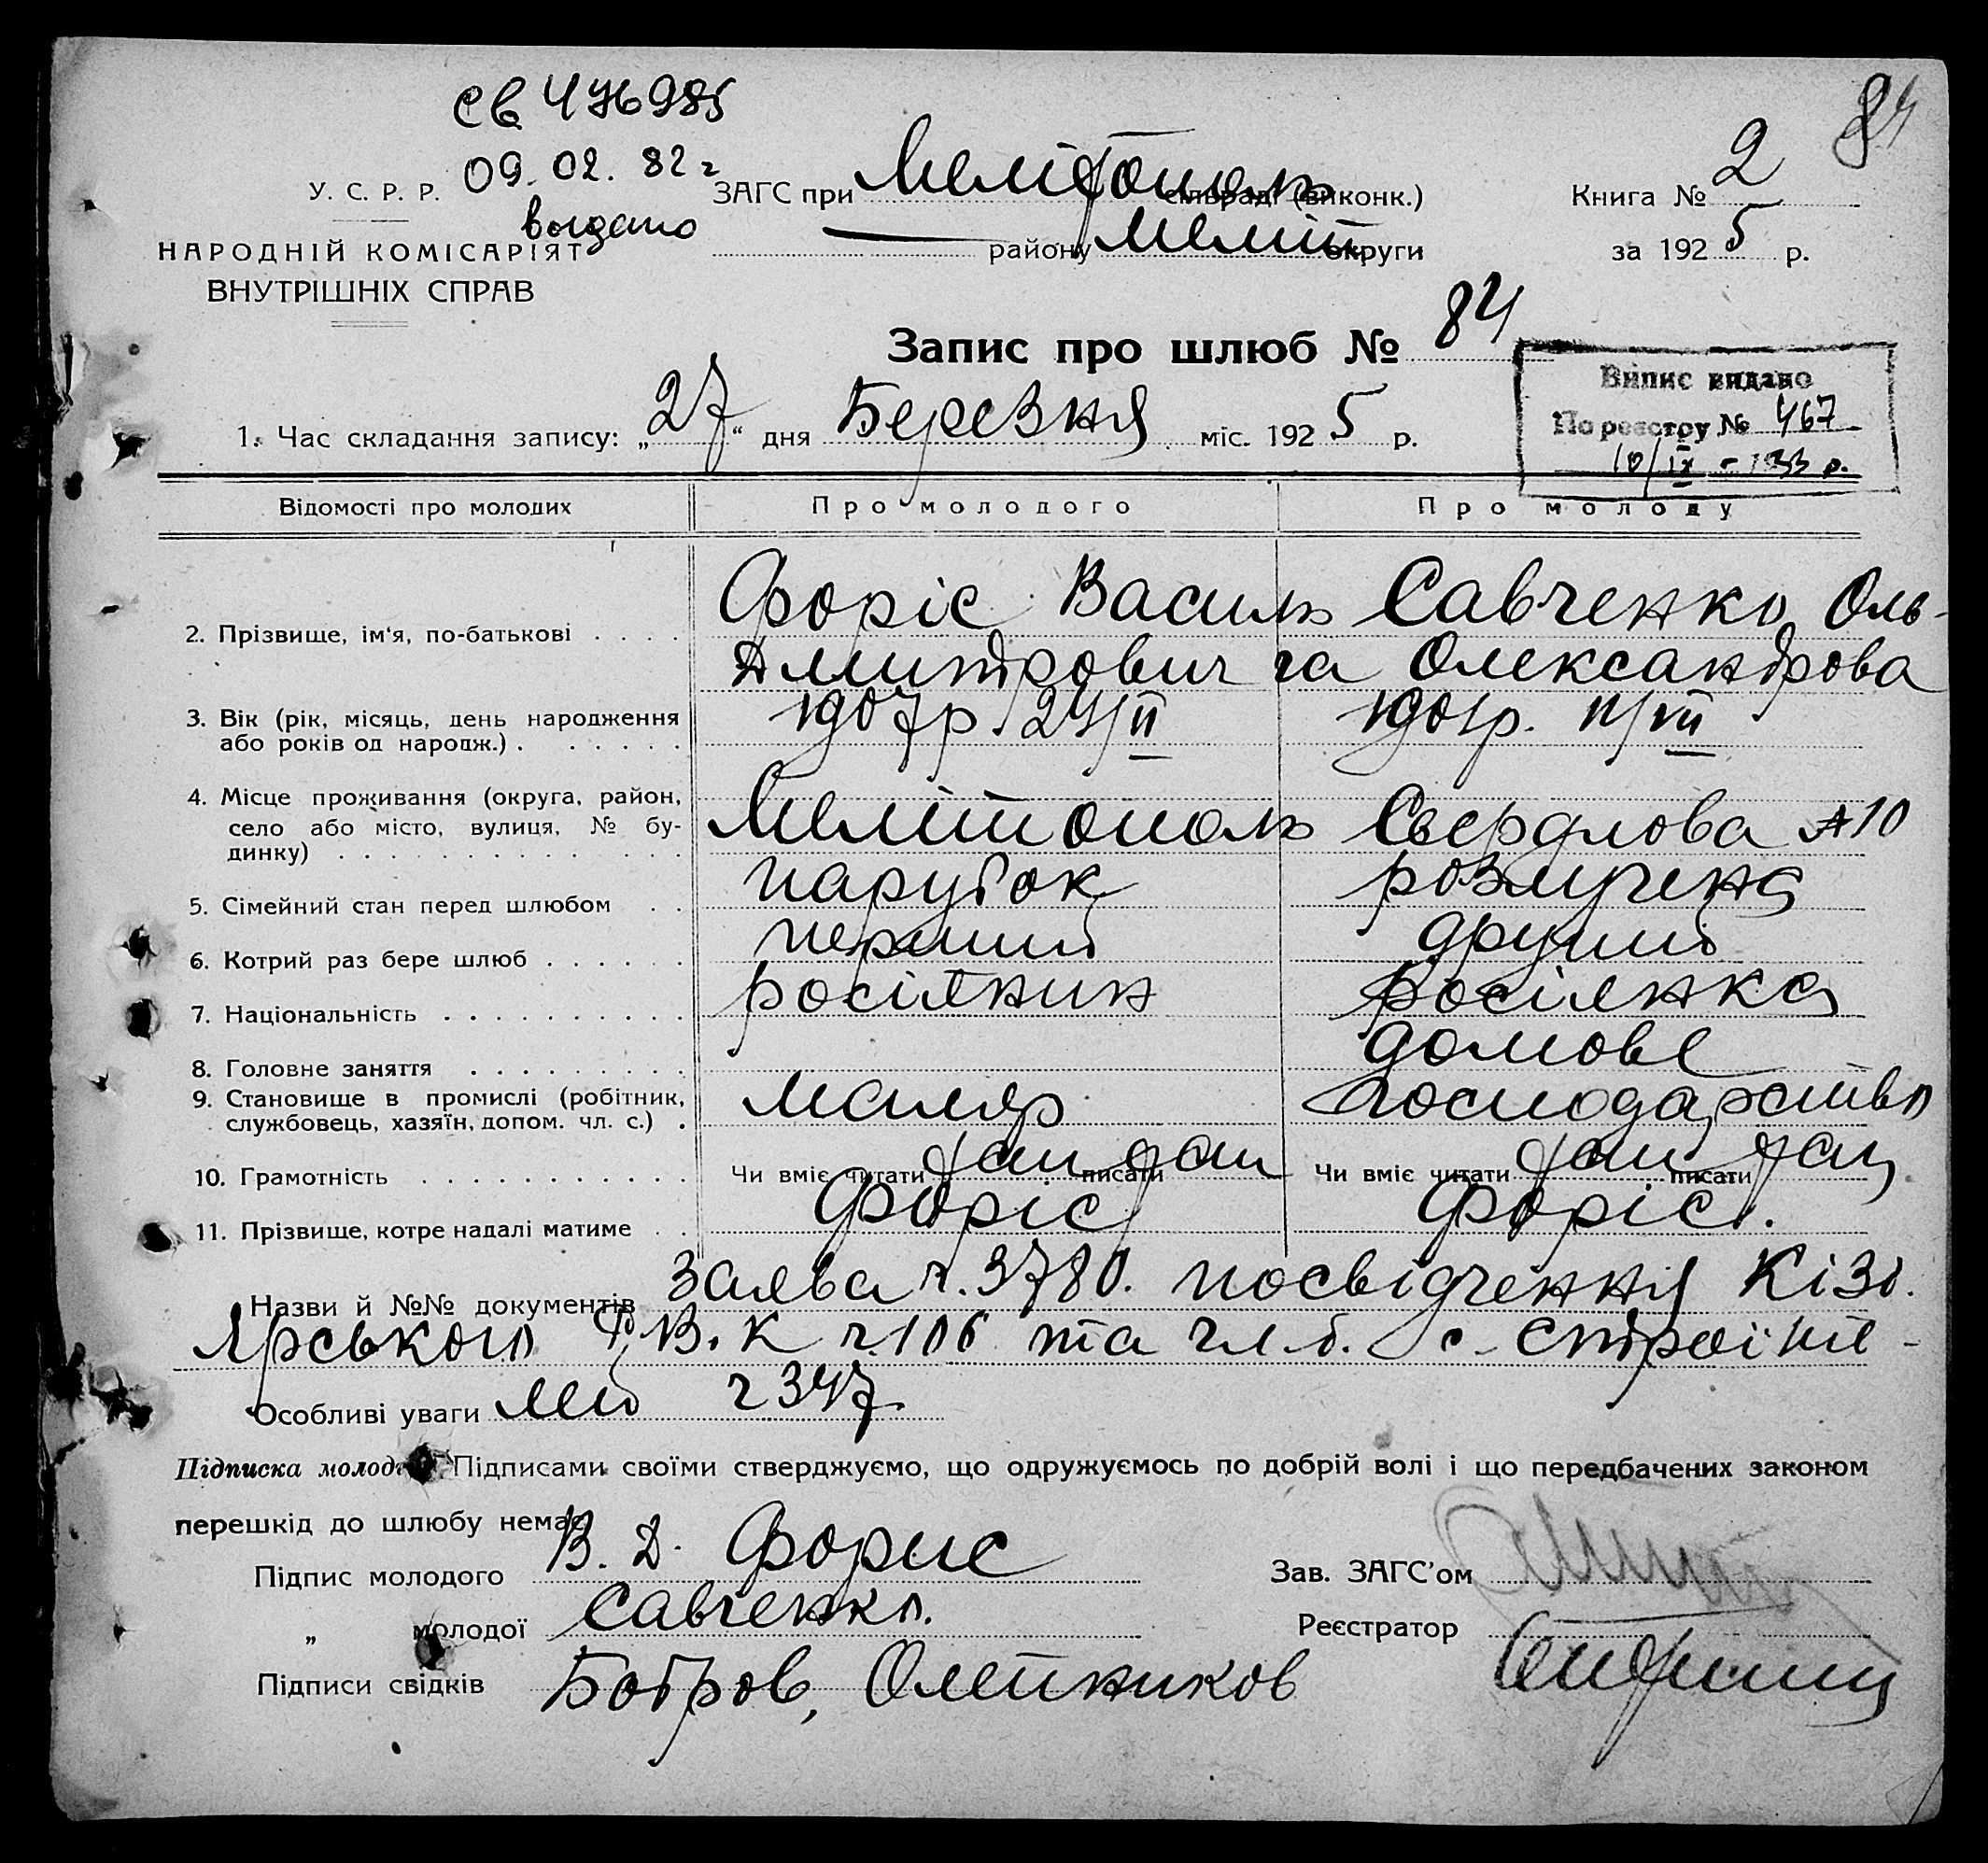 св 476985
84
09.02.82 г
У. С. Р. Р. ЗАГС при Мелітополь сільраді (виконк.) Книга № 2
выдано
НАРОДНІЙ КОМІСАРІЯТ — району Меліт округи за 1925 р.
ВНУТРІШНІХ СПРАВ
Запис про шлюб № 84
Випис видано
По реєстру № 467
10/IX - 133 р.
1. Час складання запису: „27“ дня Березня міс. 1925 р.
Відомості про молодих Про молодого Про молоду
2. Прізвище, ім'я, по-батькові Форіс Василь Савченко Оль-
Дмитрович га Олександрова
3. Вік (рік, місяць, день народження 1907р. 24/II 1901р. 11/VII
або років од народж.)
4. Місце проживання (округа, район,
село або місто, вулиця, № бу- Мелітополь Свердлова №10
динку)
5. Сімейний стан перед шлюбом парубок розлучена
6. Котрий раз бере шлюб перший другий
7. Національність росіянин росіянка
8. Головне заняття домове
9. Становище в промислі (робітник, маляр господарство
службовець, хазяїн, допом. чл. с.)
10. Грамотність Чи вміє читати так писати так Чи вміє читати так писати так
11. Прізвище, котре надалі матиме Форіс Форіс.
Назви й №№ документів Заява ч. 3780. посвідчення Кізі
Ярського Р.В.К ч.106 та чл.б. с. строїте-
Особливі уваги лей ч 347
Підписка молодих Підписами своїми стверджуємо, що одружуємось по добрій волі і що передбачених законом
перешкід до шлюбу немає
Підпис молодого В. Д. Форис Зав. ЗАГС'ом
„ молодої Савченко. Реєстратор
Підписи свідків Бобров, Олейников